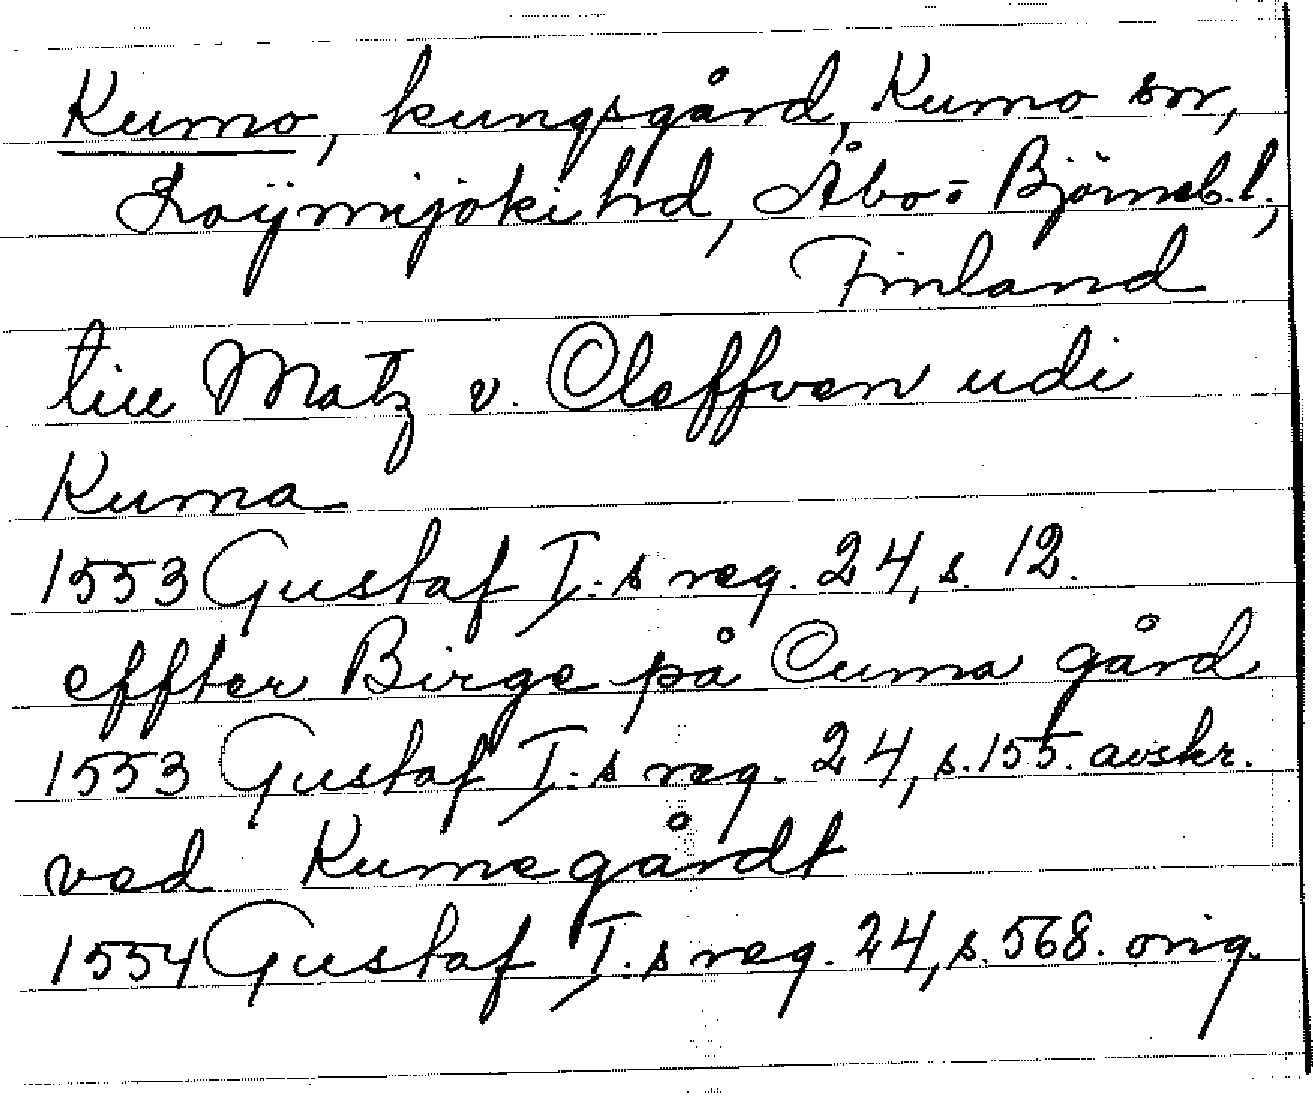 Kumo, kungsgård, Kumo sn,
Loÿmijoki hd, Åbo- Björneb. l.,
Finland
till Matz v. Oleffven udi
Kuma
1553 Gustaf I:s reg. 24, s. 12.
effter Birge på Cuma gård
1553 Gustaf I:s reg. 24, s. 155. avskr.
ved Kumegårdt
1554 Gustaf I:s reg. 24, s. 568. orig.